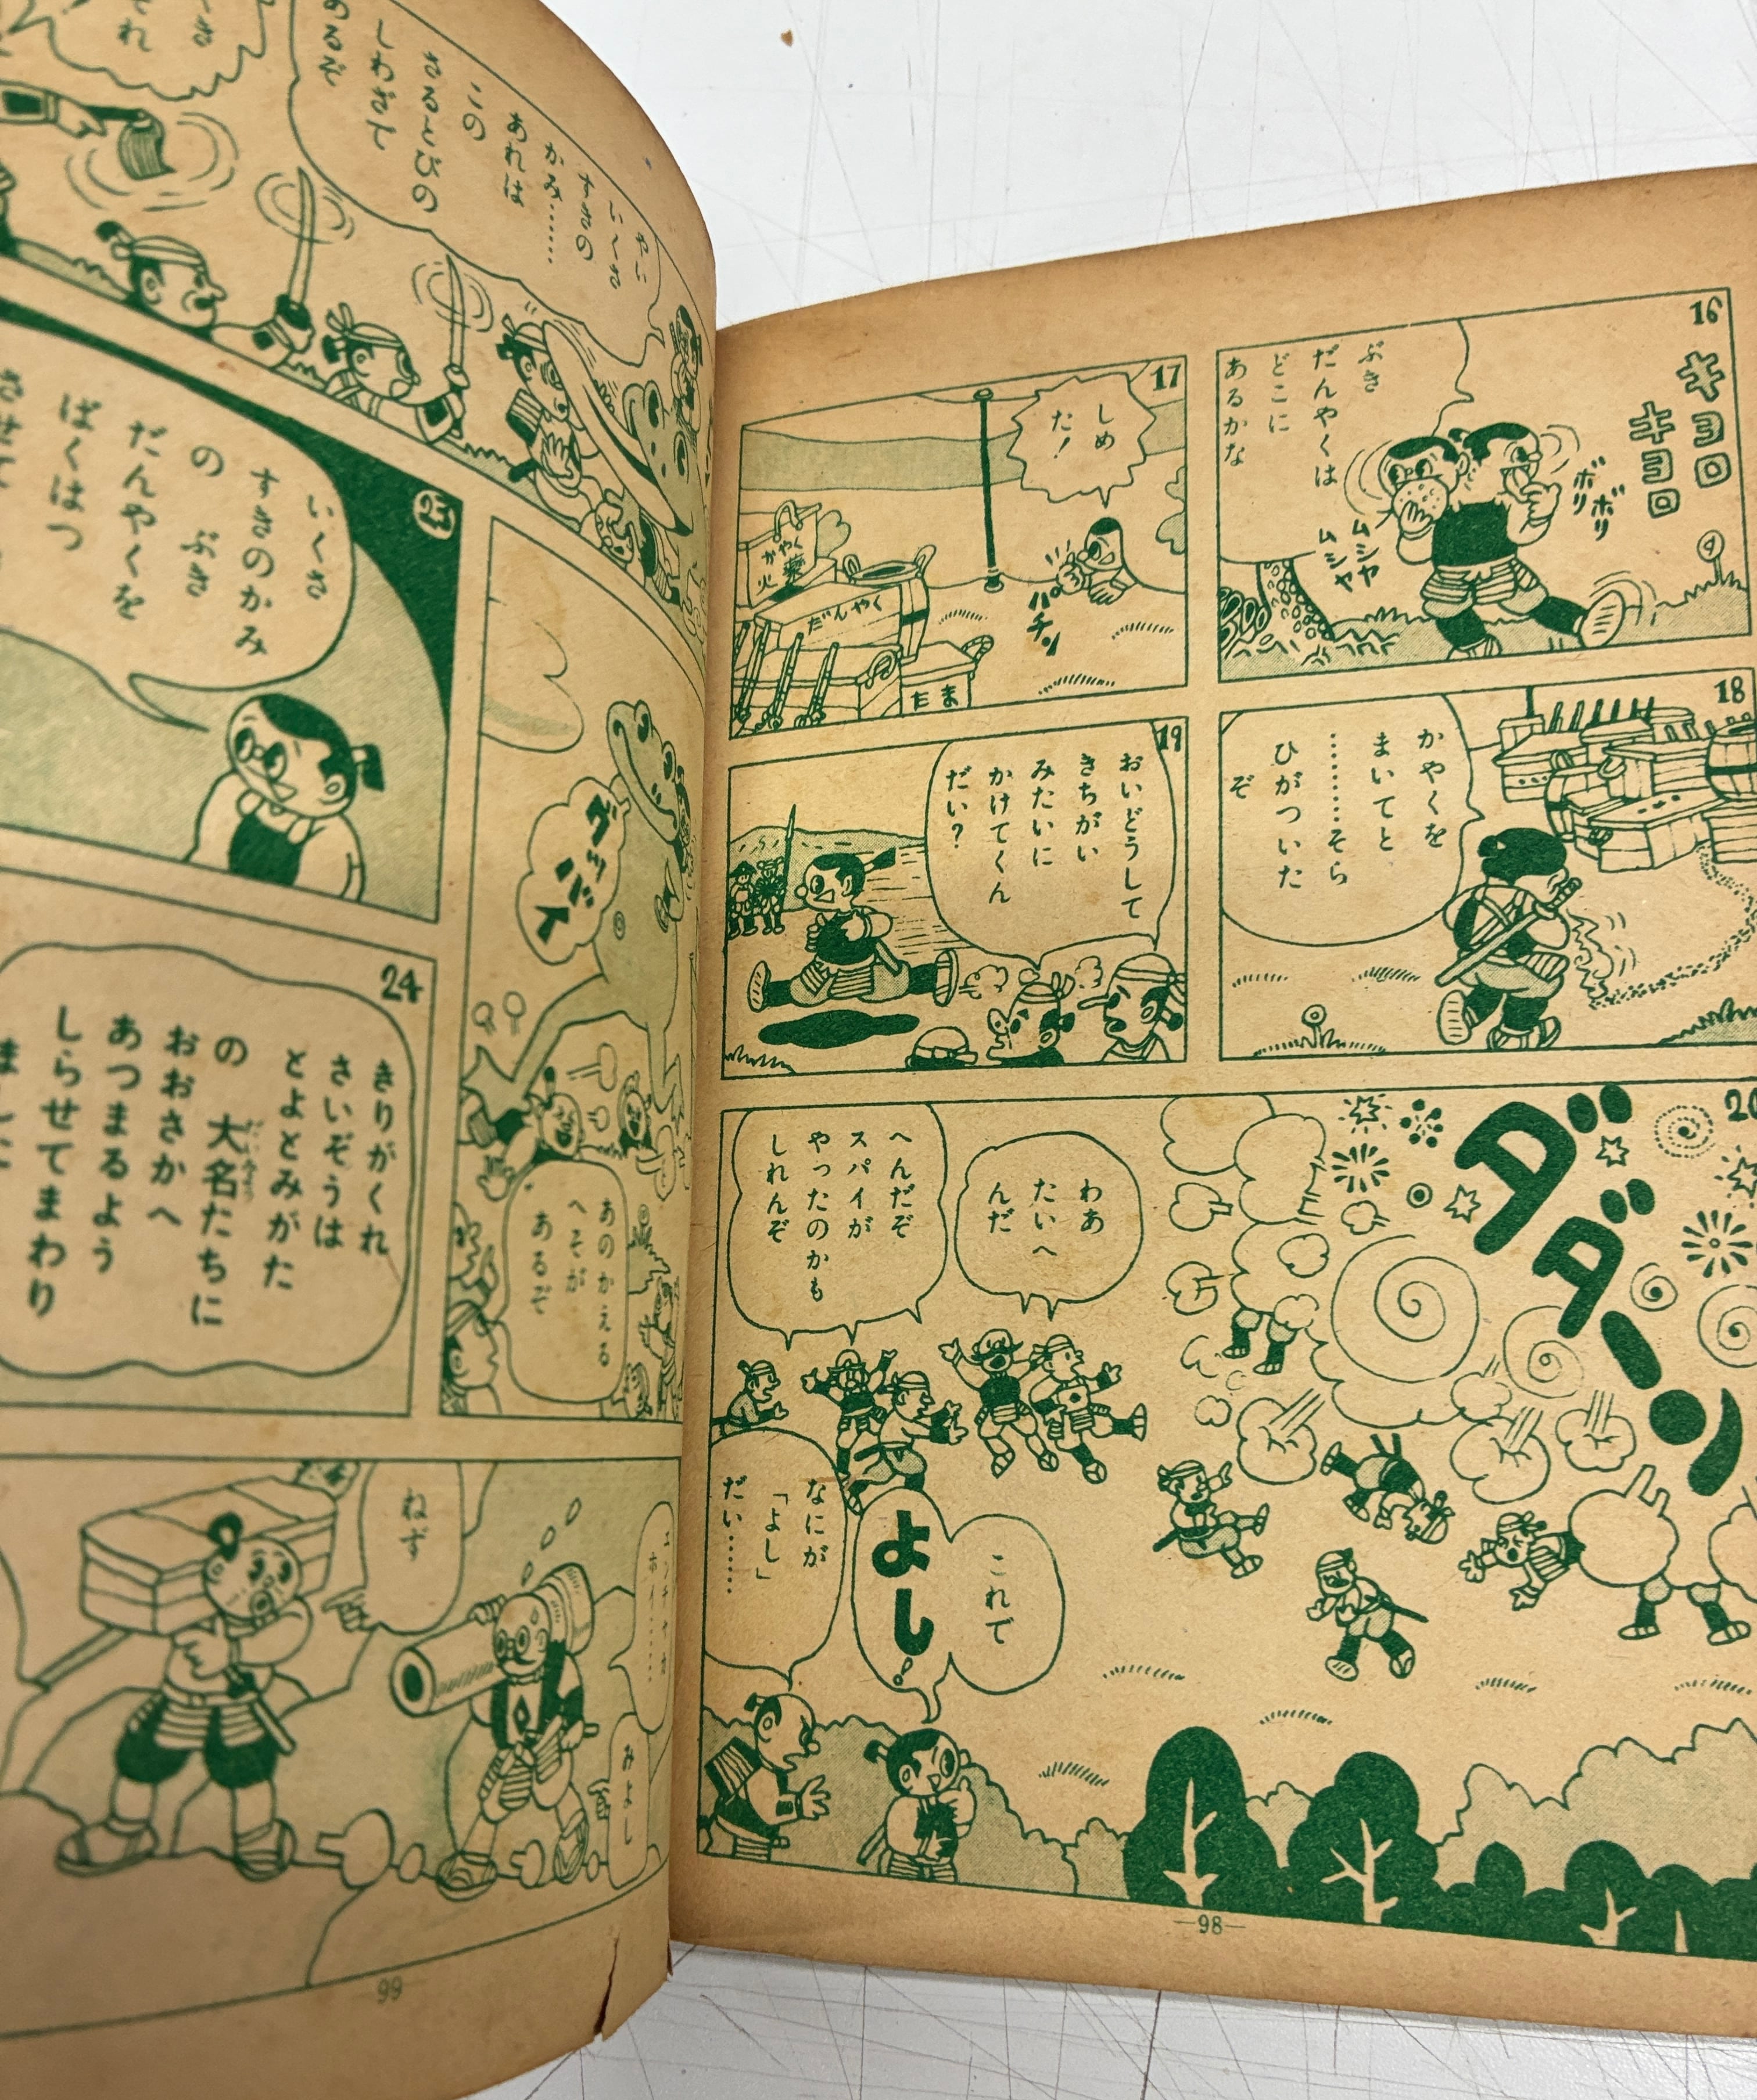 16
キョロ
キョロ
ぶき
だんやくは
どこに
あるかな
ボリ
ボリ
ムシャ
ムシャ
17
しめ
た!
パチン
かやく
火薬
だんやく
たま
18
かやくを
まいてと
………そら
ひがついた
ぞ
19
おいどうして
きちがい
みたいに
かけてくん
だい?
20
ダダーン
わあ
たいへ
んだ
へんだぞ
スパイが
やったのかも
しれんぞ
これで
よし!
なにが
「よし」
だい……
—98—
やい
いしさ
すぎの
かみ……
あれは
この
さるとびの
しわざで
あるぞ
き
れ
グッ
バイ
あのかえる
へそが
あるぞ
23
いくさ
すきのかみ
の ぶき
だんやくを
ばくはつ
させて
24
きりがくれ
さいぞうは
とよとみがた
の 大名たちに
だいみょう
おおさかへ
あつまるよう
しらせてまわり
ました
エッチラカ
ホイ……
みよし
ねず
99